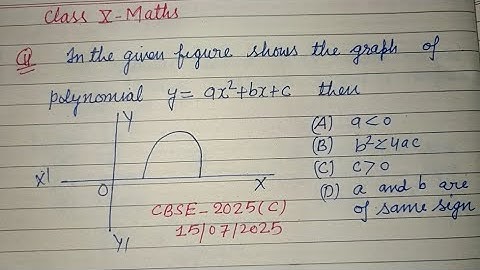 Class X-Maths
Q In the given figure shows the graph of
polynomial y = ax²+bx+c then
(A) a<0
(B) b²<4ac
(C) c>0
(D) a and b are
of same sign
Y
X'
O
X
Y'
CBSE-2025(C)
15/07/2025